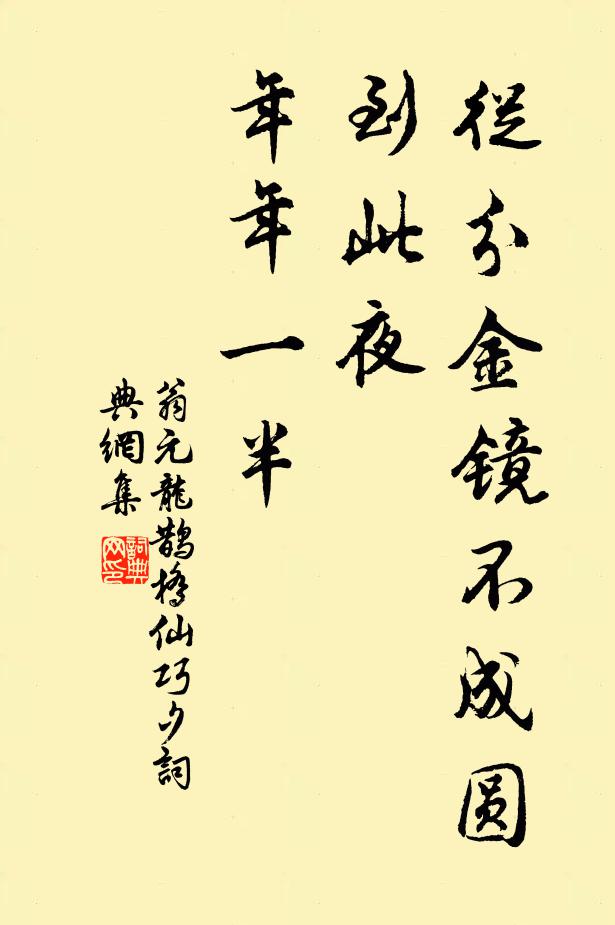 從分金镜不成圆
到此夜
年年一半
翁元龍鹊橋仙巧夕詞
典網集
詞典
网印